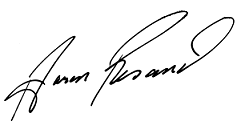 Aaron Rosand